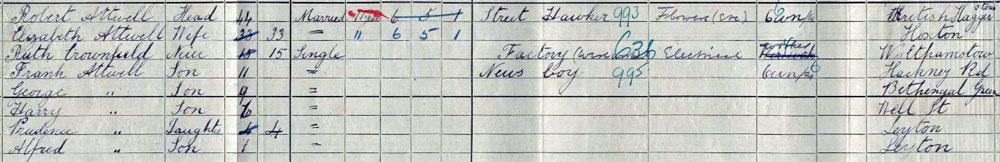 Robert Attwell Head 44 Married 6 5 1 Street Hawker 993 Flowers (etc) Haggerstone
Elizabeth Attwell Wife 33 " 11 6 5 1 Hoxton
Ruth Crownfield Niece 15 15 Single Factory 636 Worker Walthamstow
Frank Attwell Son 11 " News boy 995 Hackney Rd
George " Son 9 " Bethengal Green
Harry " Son 6 " Well St
Prudence " Daughter 4 4 " Leyton
Alfred " Son 1 " Leyton